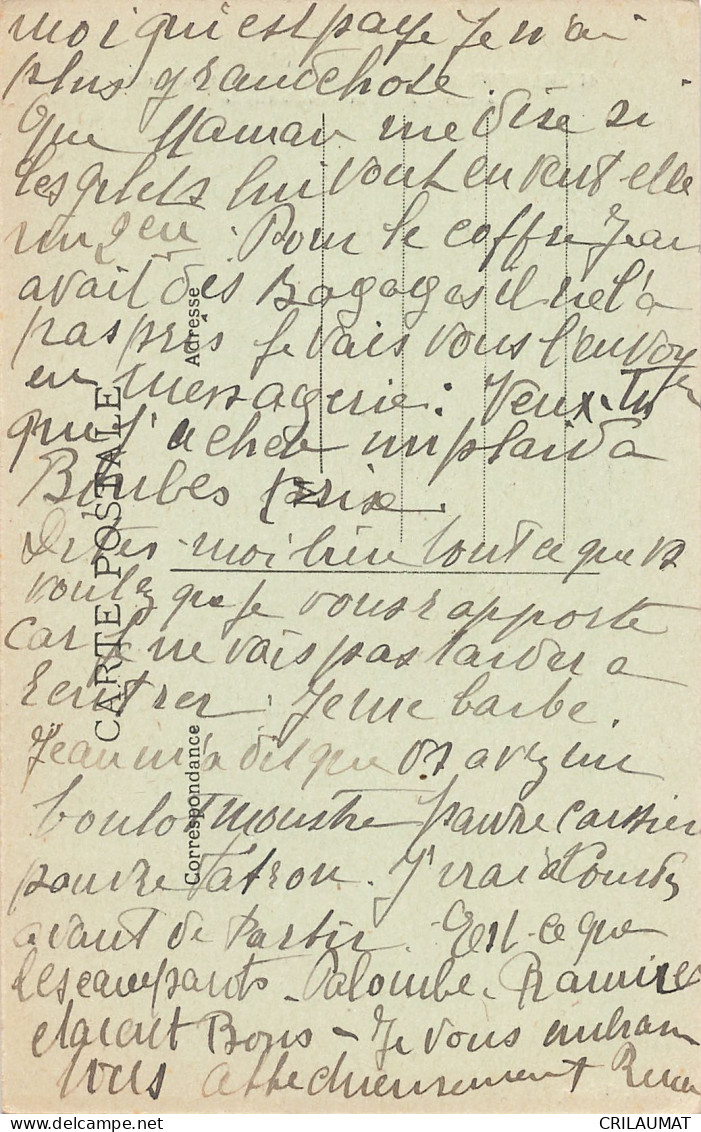 moi qui est payé je n'ai
plus grandchose.
Que Maman me dise si
les gilets lui vont en veut elle
un 2eu. Pour le coffre Jean
avait des Bagages il ne l'a
pas pris je vais vous l'envoyer
en messagerie: Veux-tu
que j'achète un plaid à
prix.
Dites-moi bien tout ce que vs
voulez que je vous rapporte
car je ne vais pas tarder à
rentrer. Je me barbe.
Jean m'a dit que vs avez un
boulot monstre pauvre
pauvre Patron. J'irai à
avant de Partir. Est-ce que
les Palombe. Ramirez
étaient Bons - Je vous embrasse
tous affectueusement
CARTE POSTALE
Correspondance
Adresse
CRILAUMAT